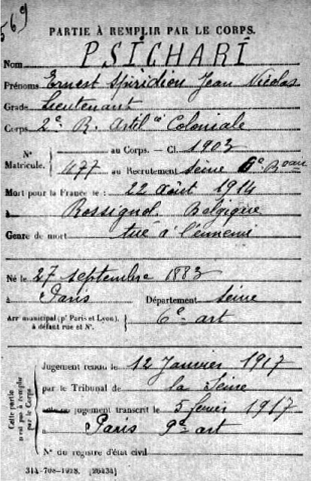 569
PARTIE À REMPLIR PAR LE CORPS.
Nom PSICHARI
Prénoms Ernest Spiridion Jean Nicolas
Grade Lieutenant
Corps 2e R. Artil ie Coloniale
N° Matricule. { au Corps. — Cl. 1903
1477 au Recrutement Seine 6e Bau
Mort pour la France le : 22 Août 1914
à Rossignol. Belgique
Genre de mort tué à l'ennemi
Né le 27 septembre 1883
à Paris Département Seine
Arr municipal (pr Paris et Lyon), à défaut rue et N°. 6e art
Cette partie n'est pas à remplir par le Corps.
Jugement rendu le 12 Janvier 1917
par le Tribunal de la Seine
jugement transcrit le 5 février 1917
à Paris 9e art
N° du registre d'état civil